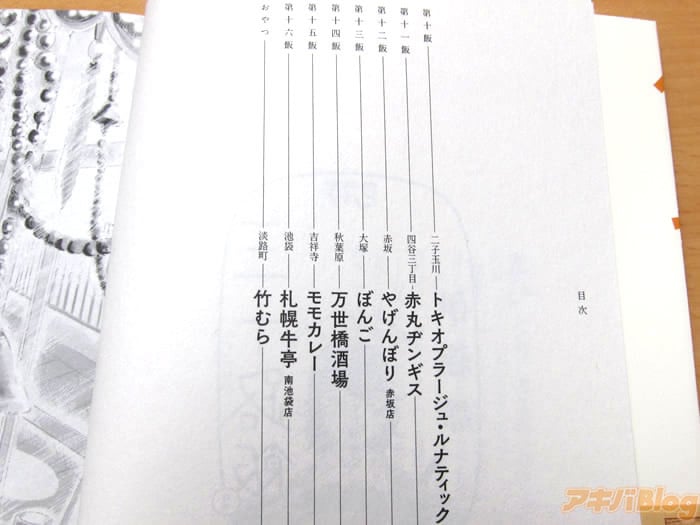 目次
第十飯 二子玉川 トキオプラージュ・ルナティック
第十一飯 四谷三丁目 赤丸ヂンギス
第十二飯 赤坂 やげんぼり 赤坂店
第十三飯 大塚 ぼんご
第十四飯 秋葉原 万世橋酒場
第十五飯 吉祥寺 モモカレー
第十六飯 池袋 札幌牛亭 南池袋店
おやつ 淡路町 竹むら
アキバBlog